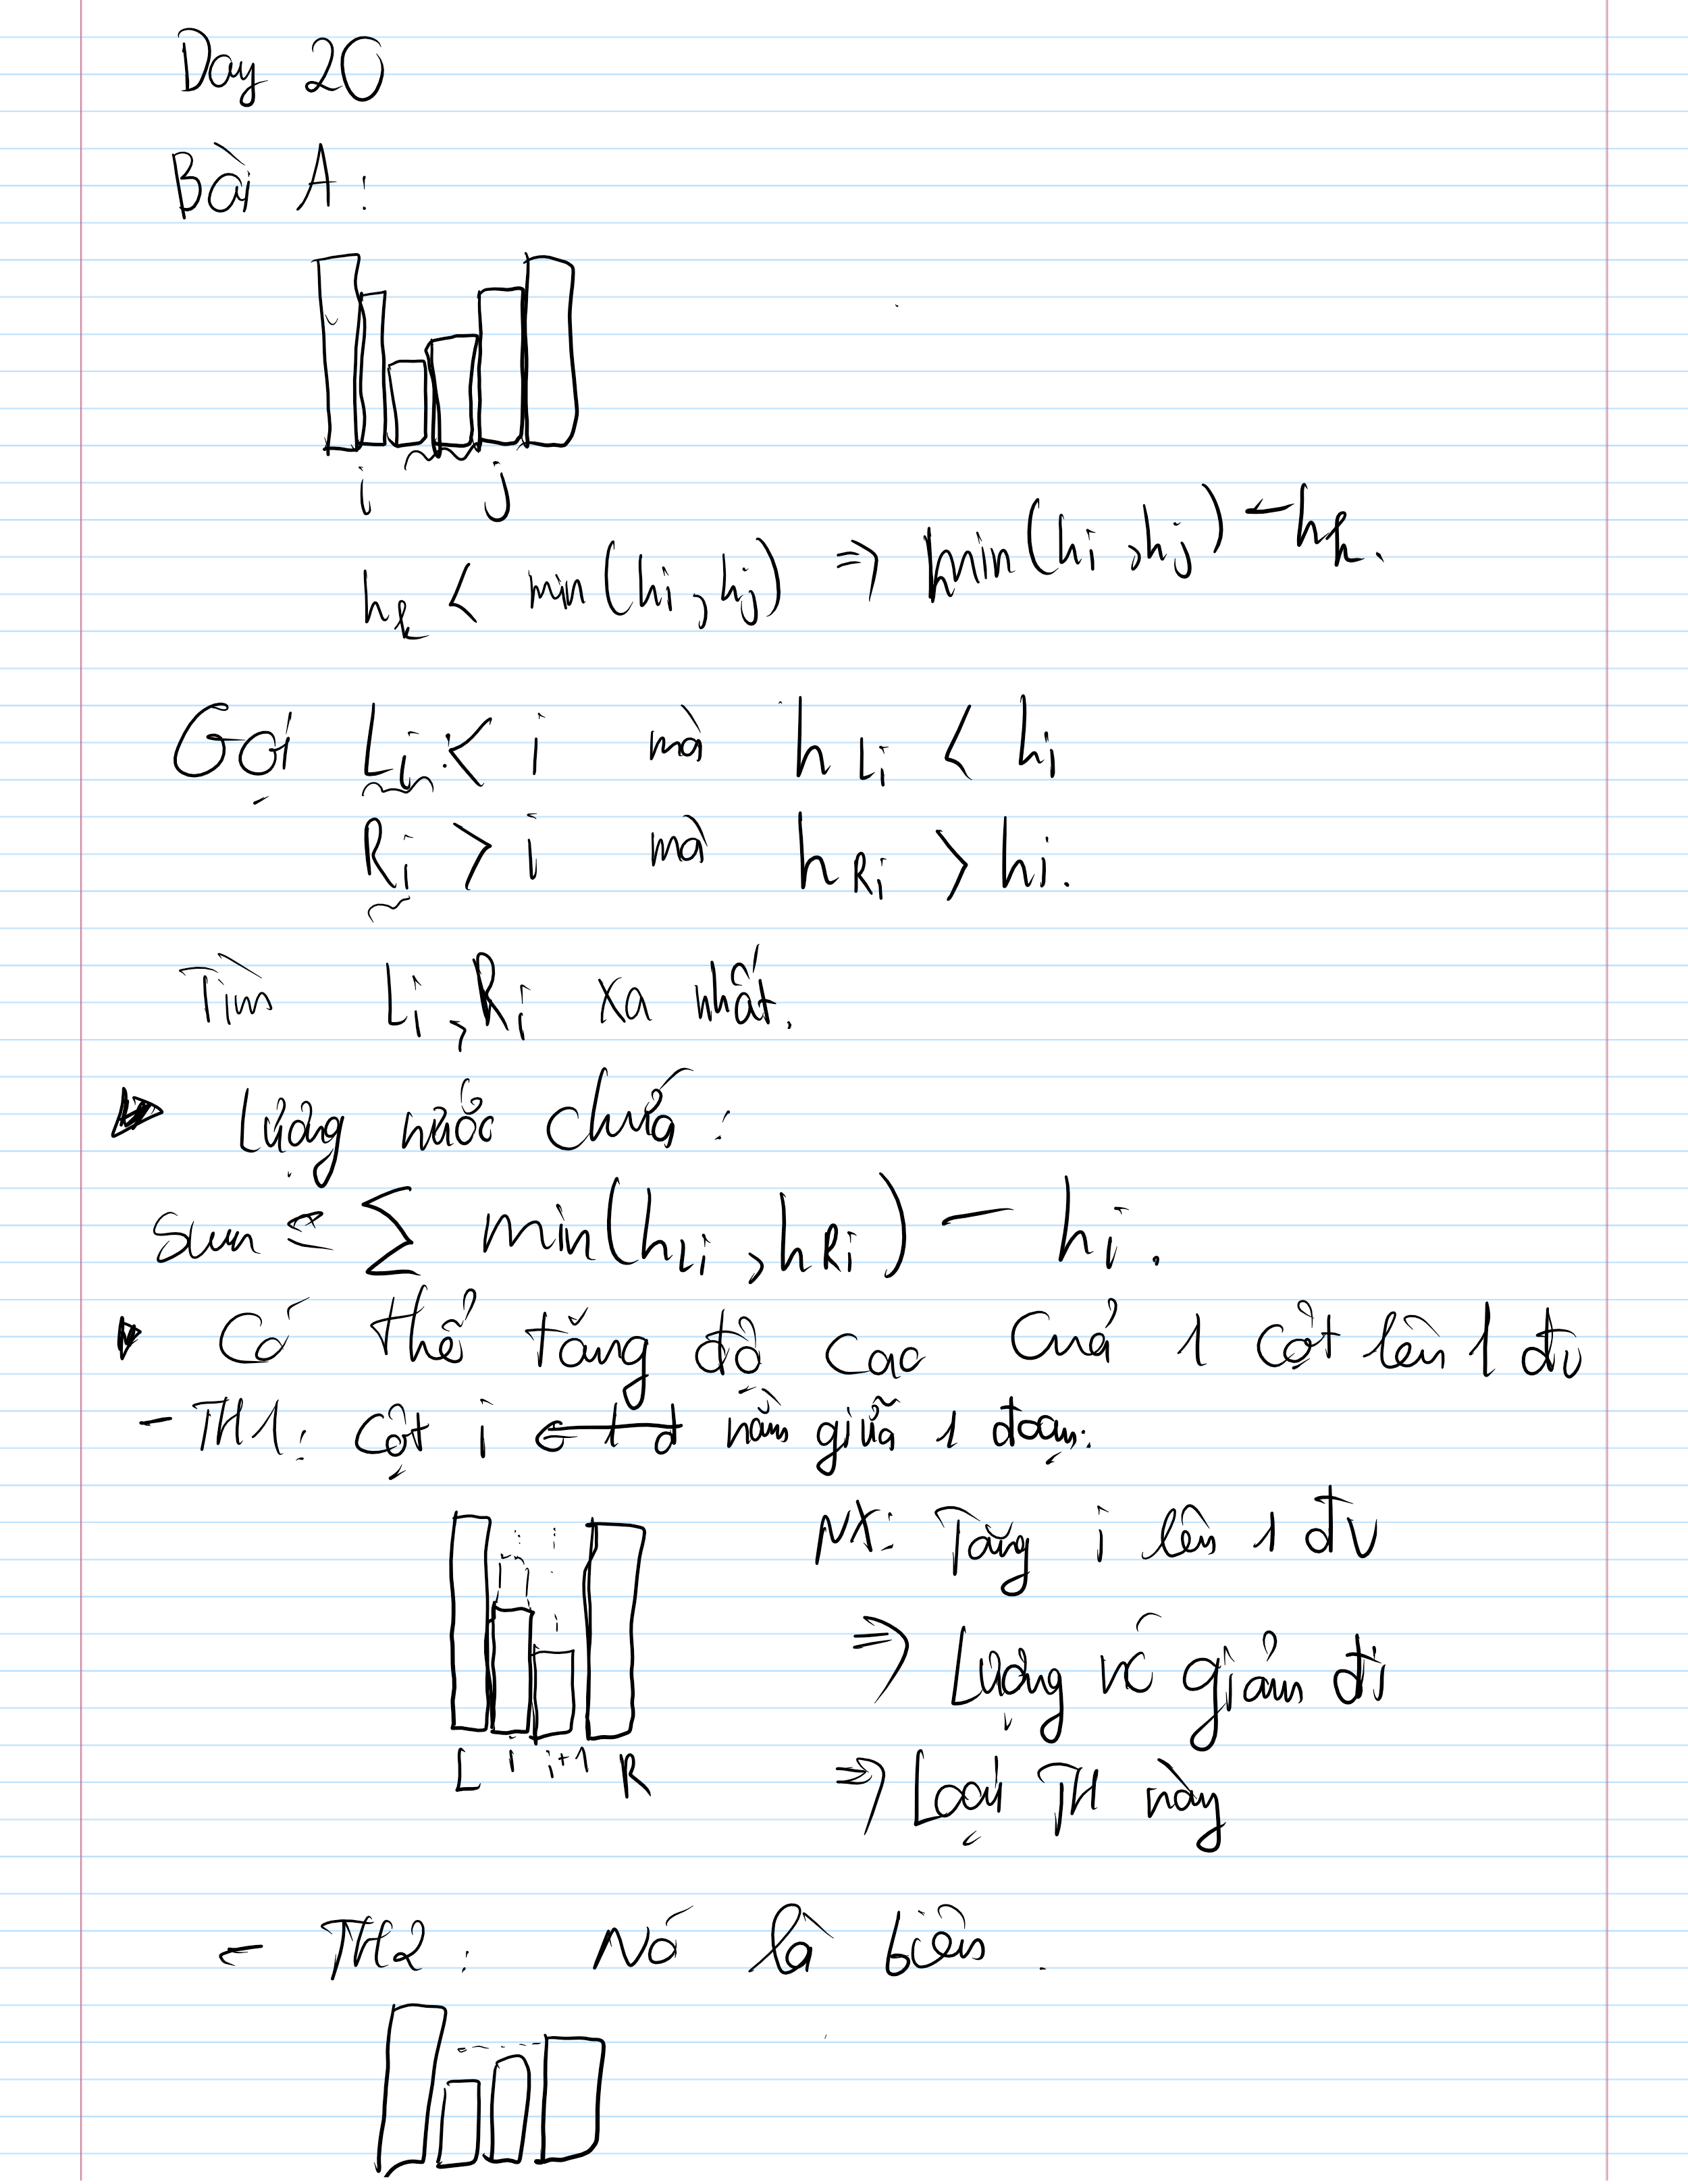 Day 20
Bài A:
i j
h_k < min(h_i, h_j) ⇒ min(h_i, h_j) - h_k.
Gọi L_i < i mà h_{L_i} < h_i
R_i > i mà h_{R_i} > h_i.
Tìm L_i, R_i xa nhất.
Lượng nước chứa:
sum = ∑ min(h_{L_i}, h_{R_i}) - h_i.
Có thể tăng độ cao của 1 cột lên 1 đv
- TH1: Cột i nằm giữa 1 đoạn:
NX: Tăng i lên 1 đv
⇒ Lượng nc giảm đi
L i i+1 R
⇒ Loại TH này
- TH2: Nó là biên.